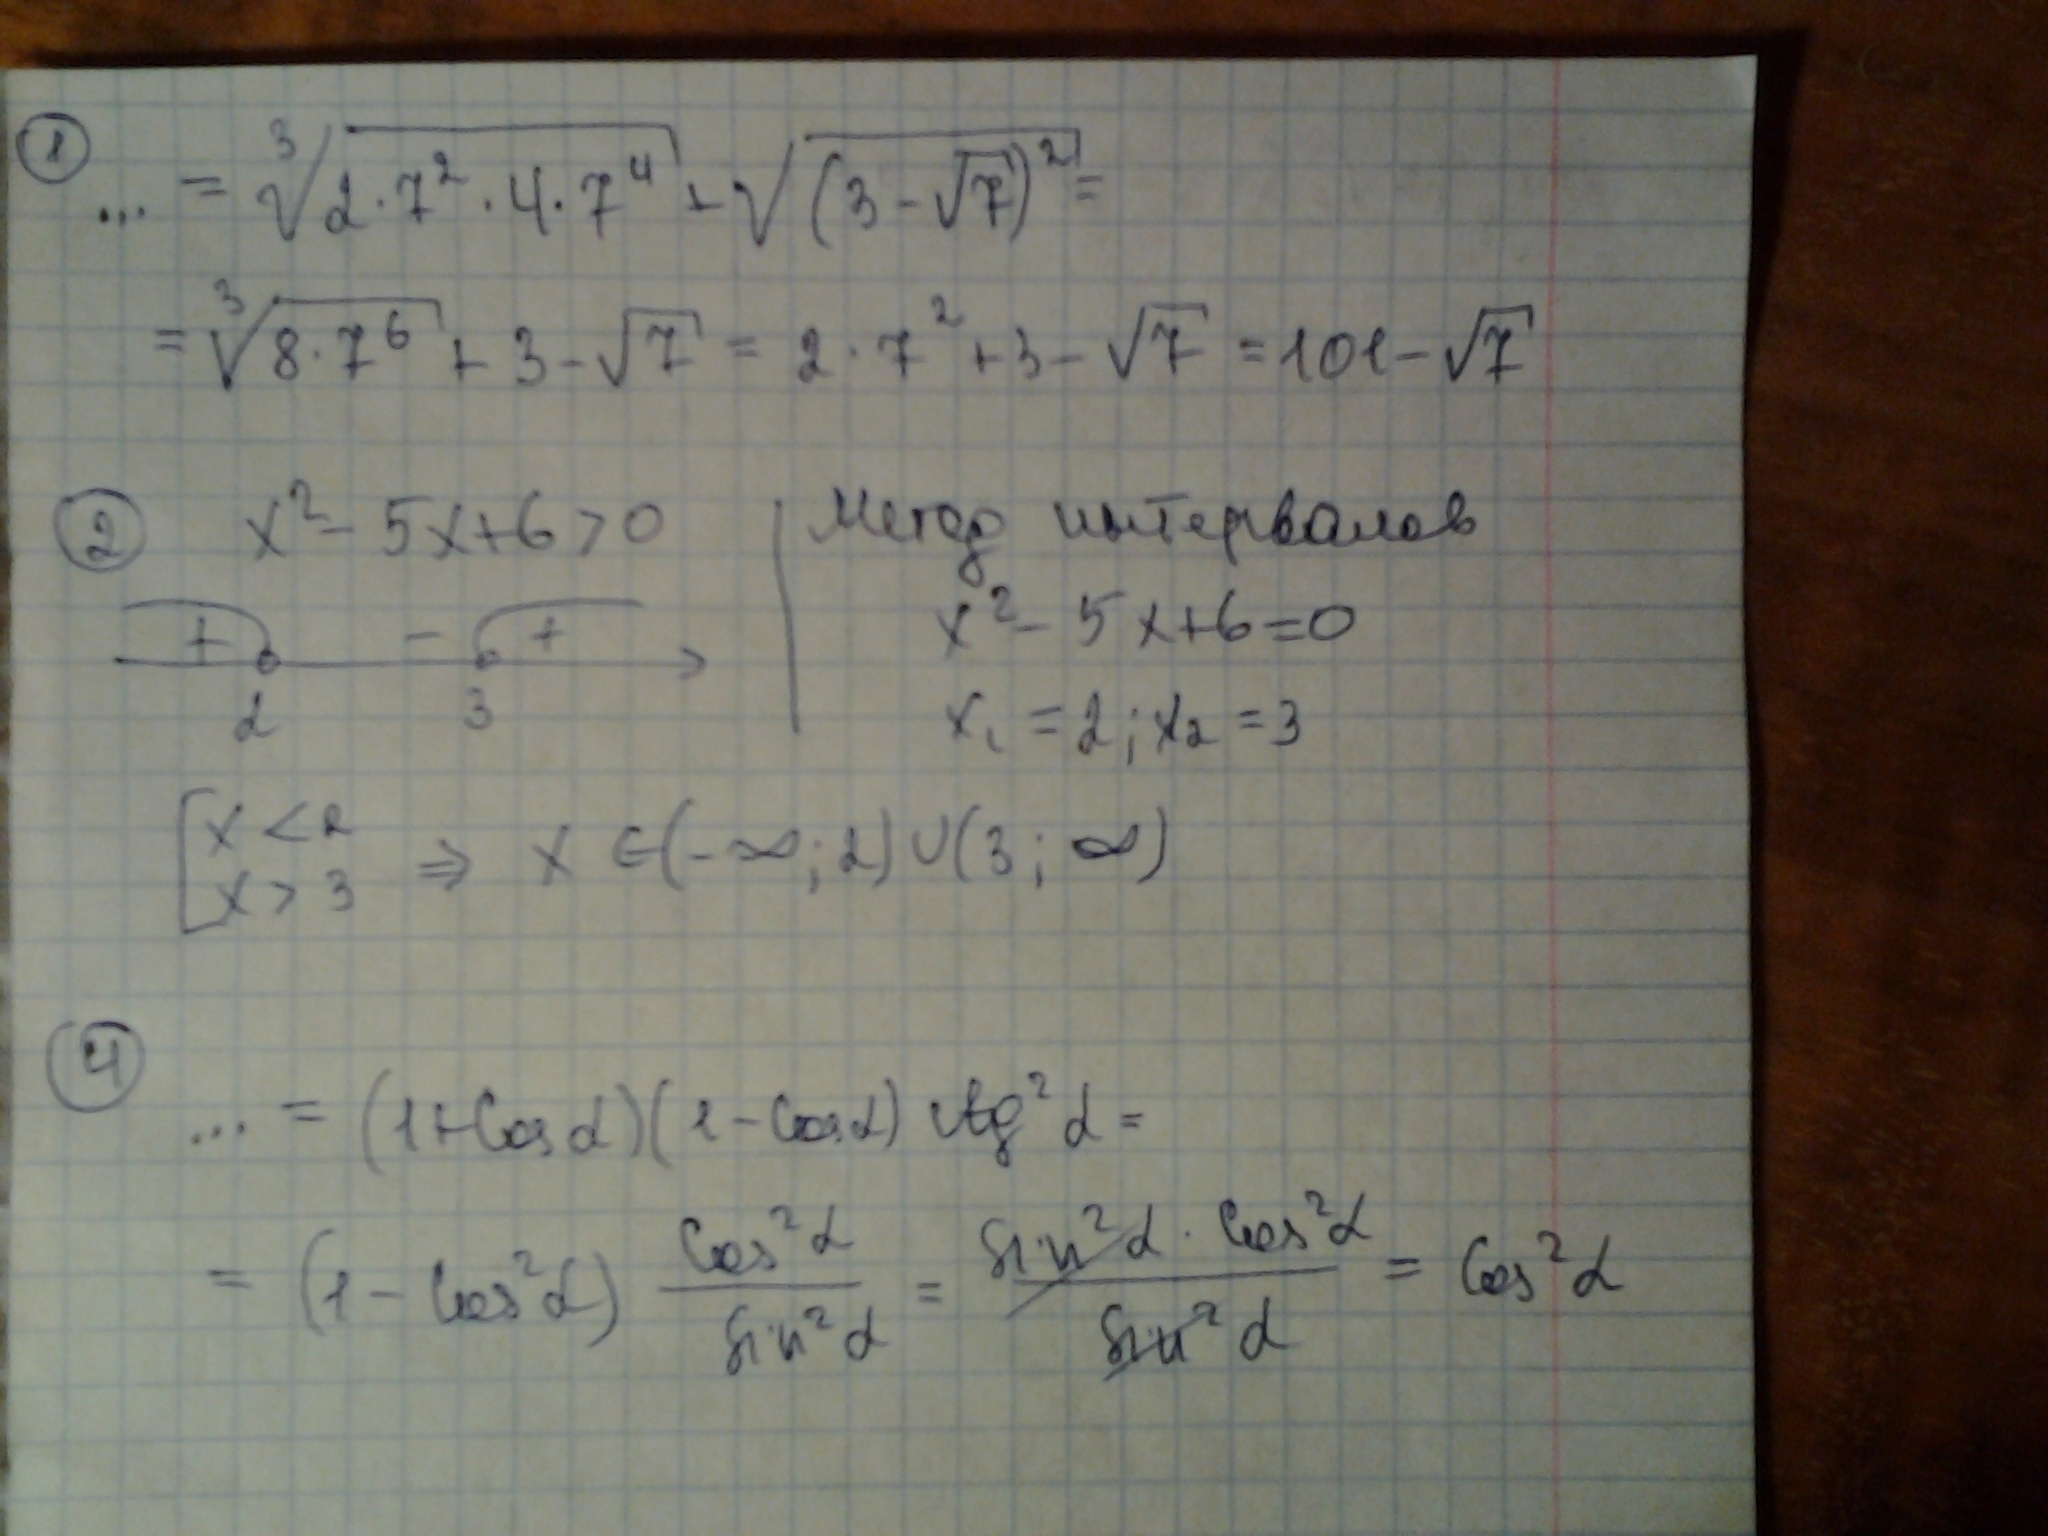 ① ... = ∛(2·7²·4·7⁴) + √((3-√7)²) =
= ∛(8·7⁶) + 3 - √7 = 2·7² + 3 - √7 = 101 - √7
② x² - 5x + 6 > 0
+ - +
2 3
Метод интервалов
x² - 5x + 6 = 0
x₁ = 2; x₂ = 3
[ x < 2
x > 3 ⇒ x ∈ (-∞; 2) ∪ (3; ∞)
④ ... = (1 + cos α)(1 - cos α) ctg² α =
= (1 - cos² α) cos² α / sin² α = sin² α · cos² α / sin² α = cos² α